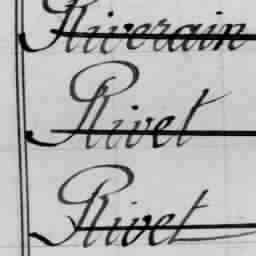 Riverain
Rivet
Rivet